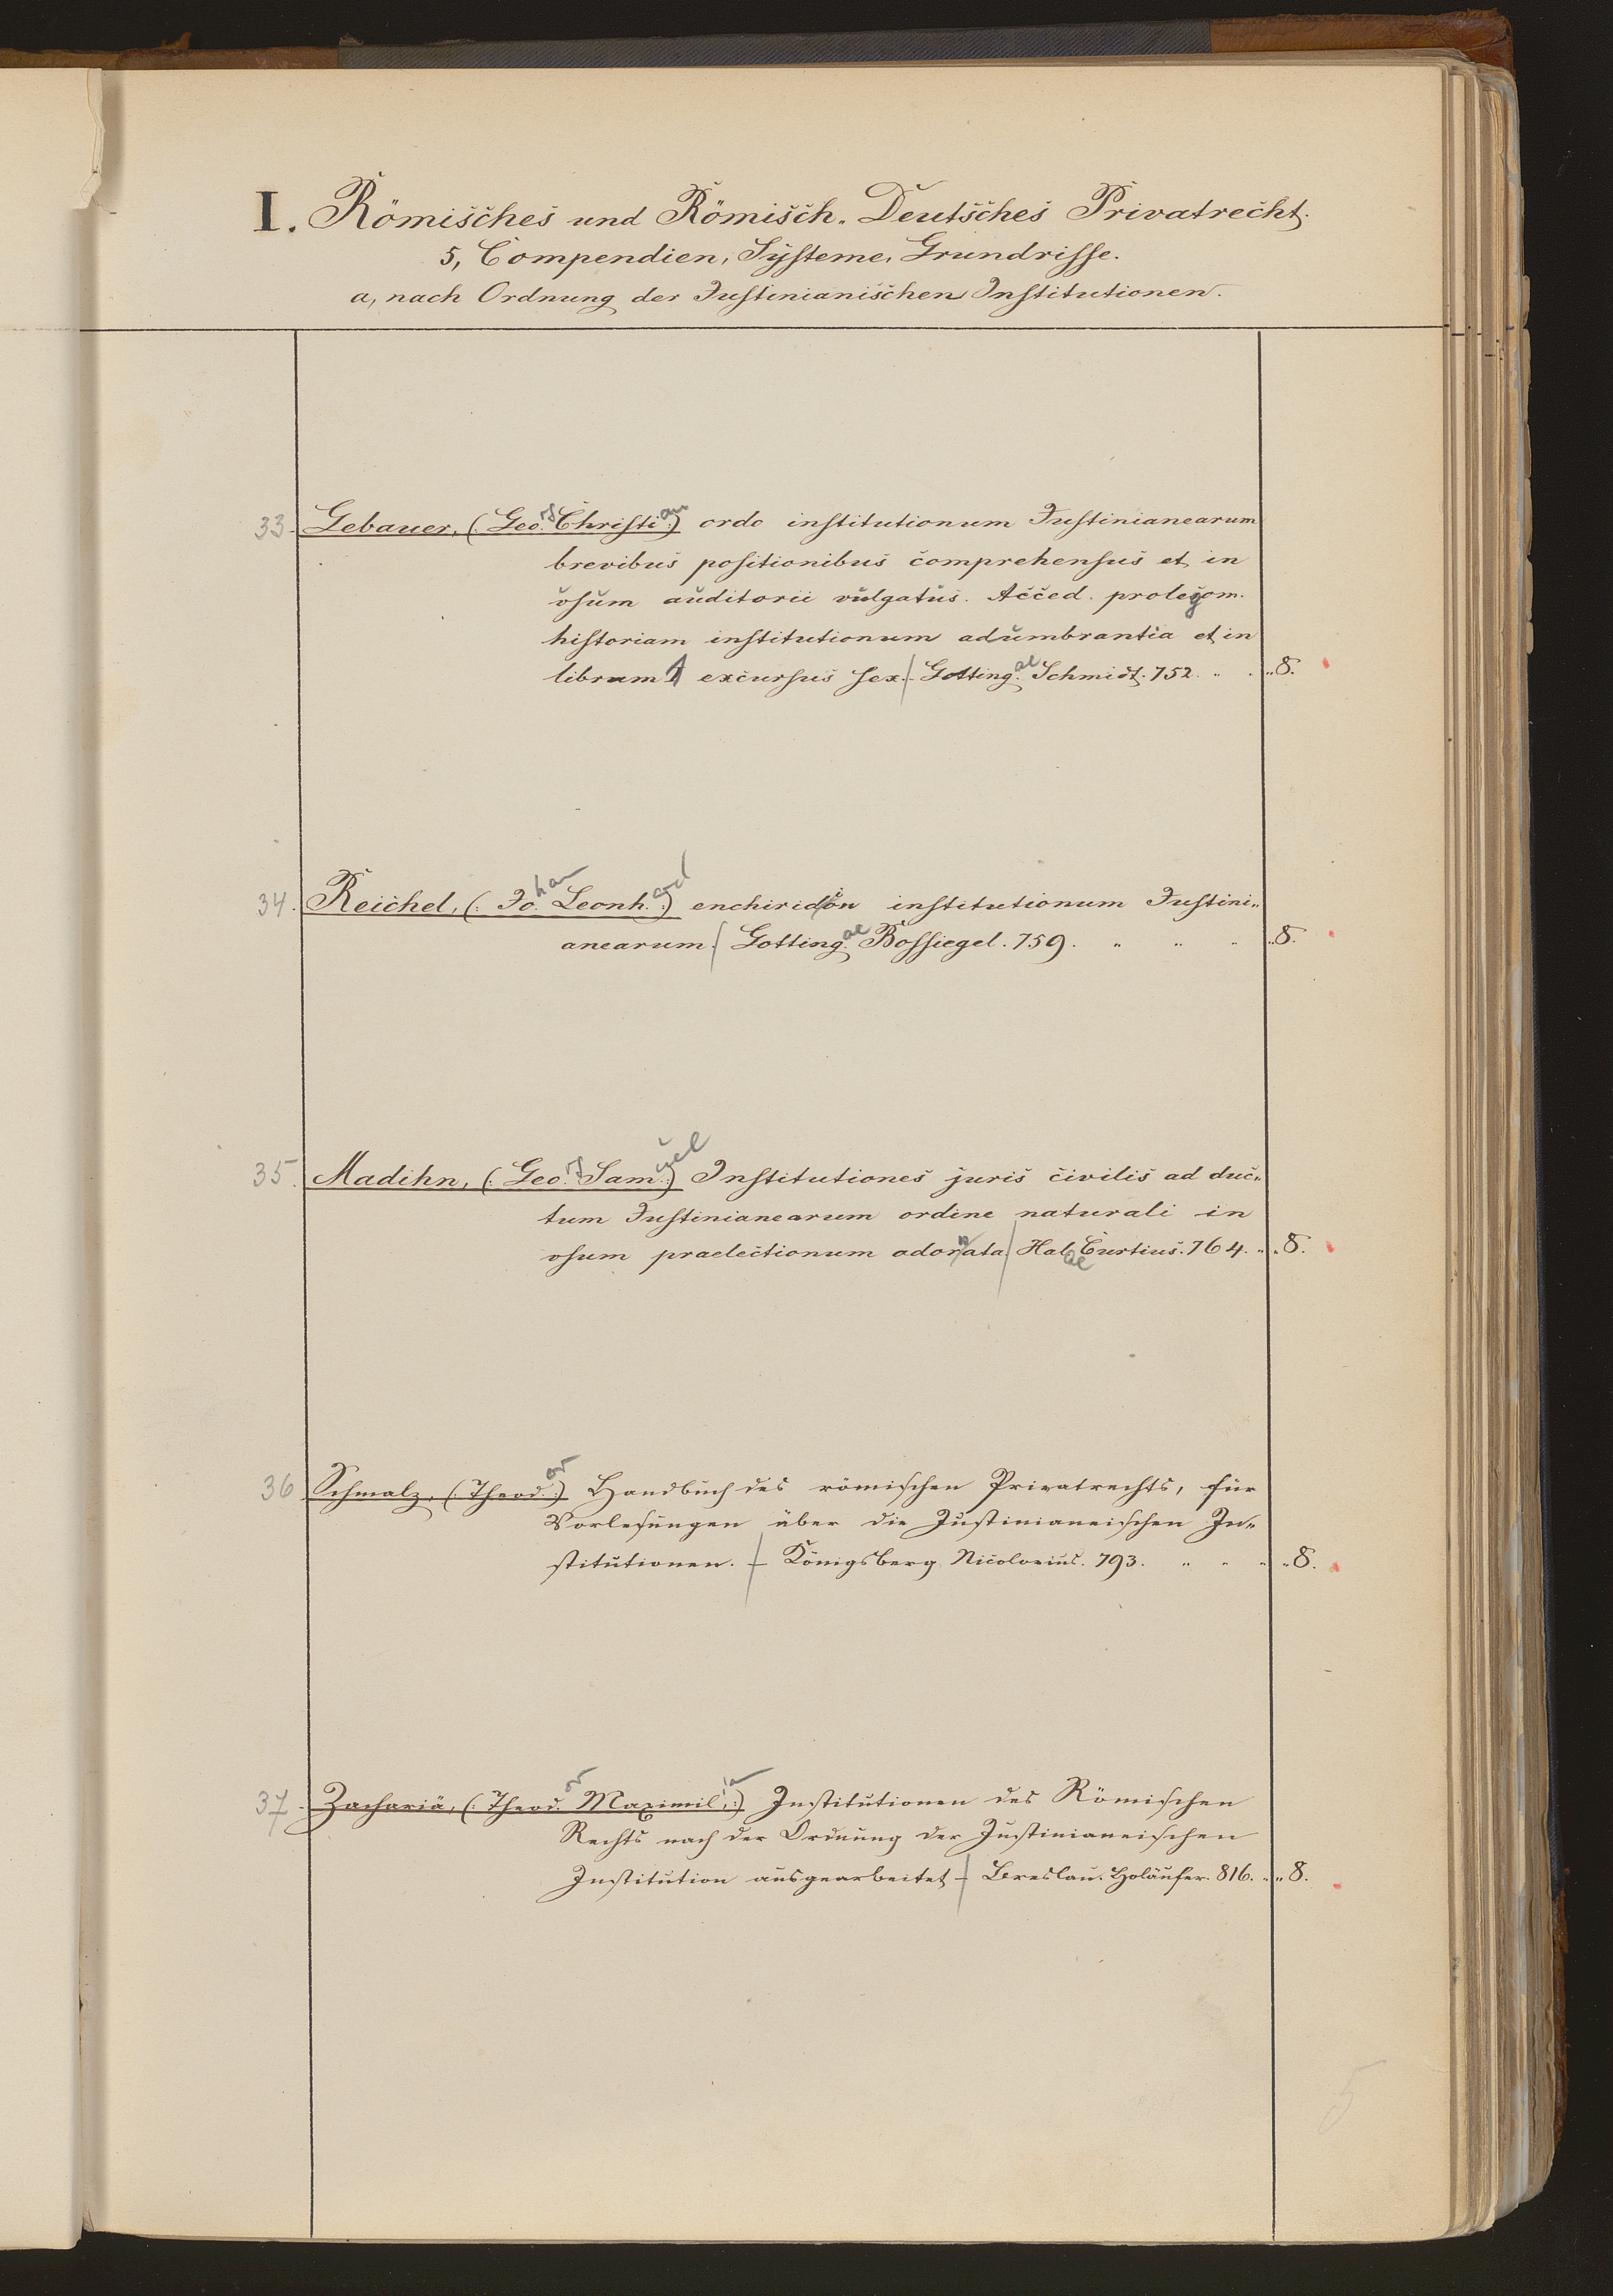 I. Römisches und Römisch-Deutsches Privatrecht.
5, Compendien, Systeme, Grundrisse.
a, nach Ordnung der Justinianischen Institutionen.
33. Gebauer, (: Geo.rg Christi.an :) ordo institutionum Justinianearum
brevibus positionibus comprehensus et in
usum auditorii vulgatus. Acced. prolegom.
historiam institutionum adumbrantia et in
librum 1 excursus sex. - Gotting.ae Schmidt. 752. " . " 8.
34. Reichel, (: Jo.han Leonh.ard :) enchiridion institutionum Justini-
anearum. Gotting.ae Bossiegel. 759. " " " " 8.
35. Madihn, (: Geo.rg Sam.uel :) Institutiones juris civilis ad duc-
tum Justinianearum ordine naturali in
usum praelectionum adornata Hal.ae Curtius. 764. " " 8.
36 Schmalz, (: Theod.or :) Handbuch des römischen Privatrechts, für
Vorlesungen über die Justinianeischen In-
stitutionen. - Königsberg Nicolovius. 793. " " " " 8.
37. Zachariä, (: Theod.or Maximil.ian :) Institutionen des Römischen
Rechts nach der Ordnung der Justinianeischen
Institution ausgearbeitet - Breslau. Holäufer. 816. " " 8.
5